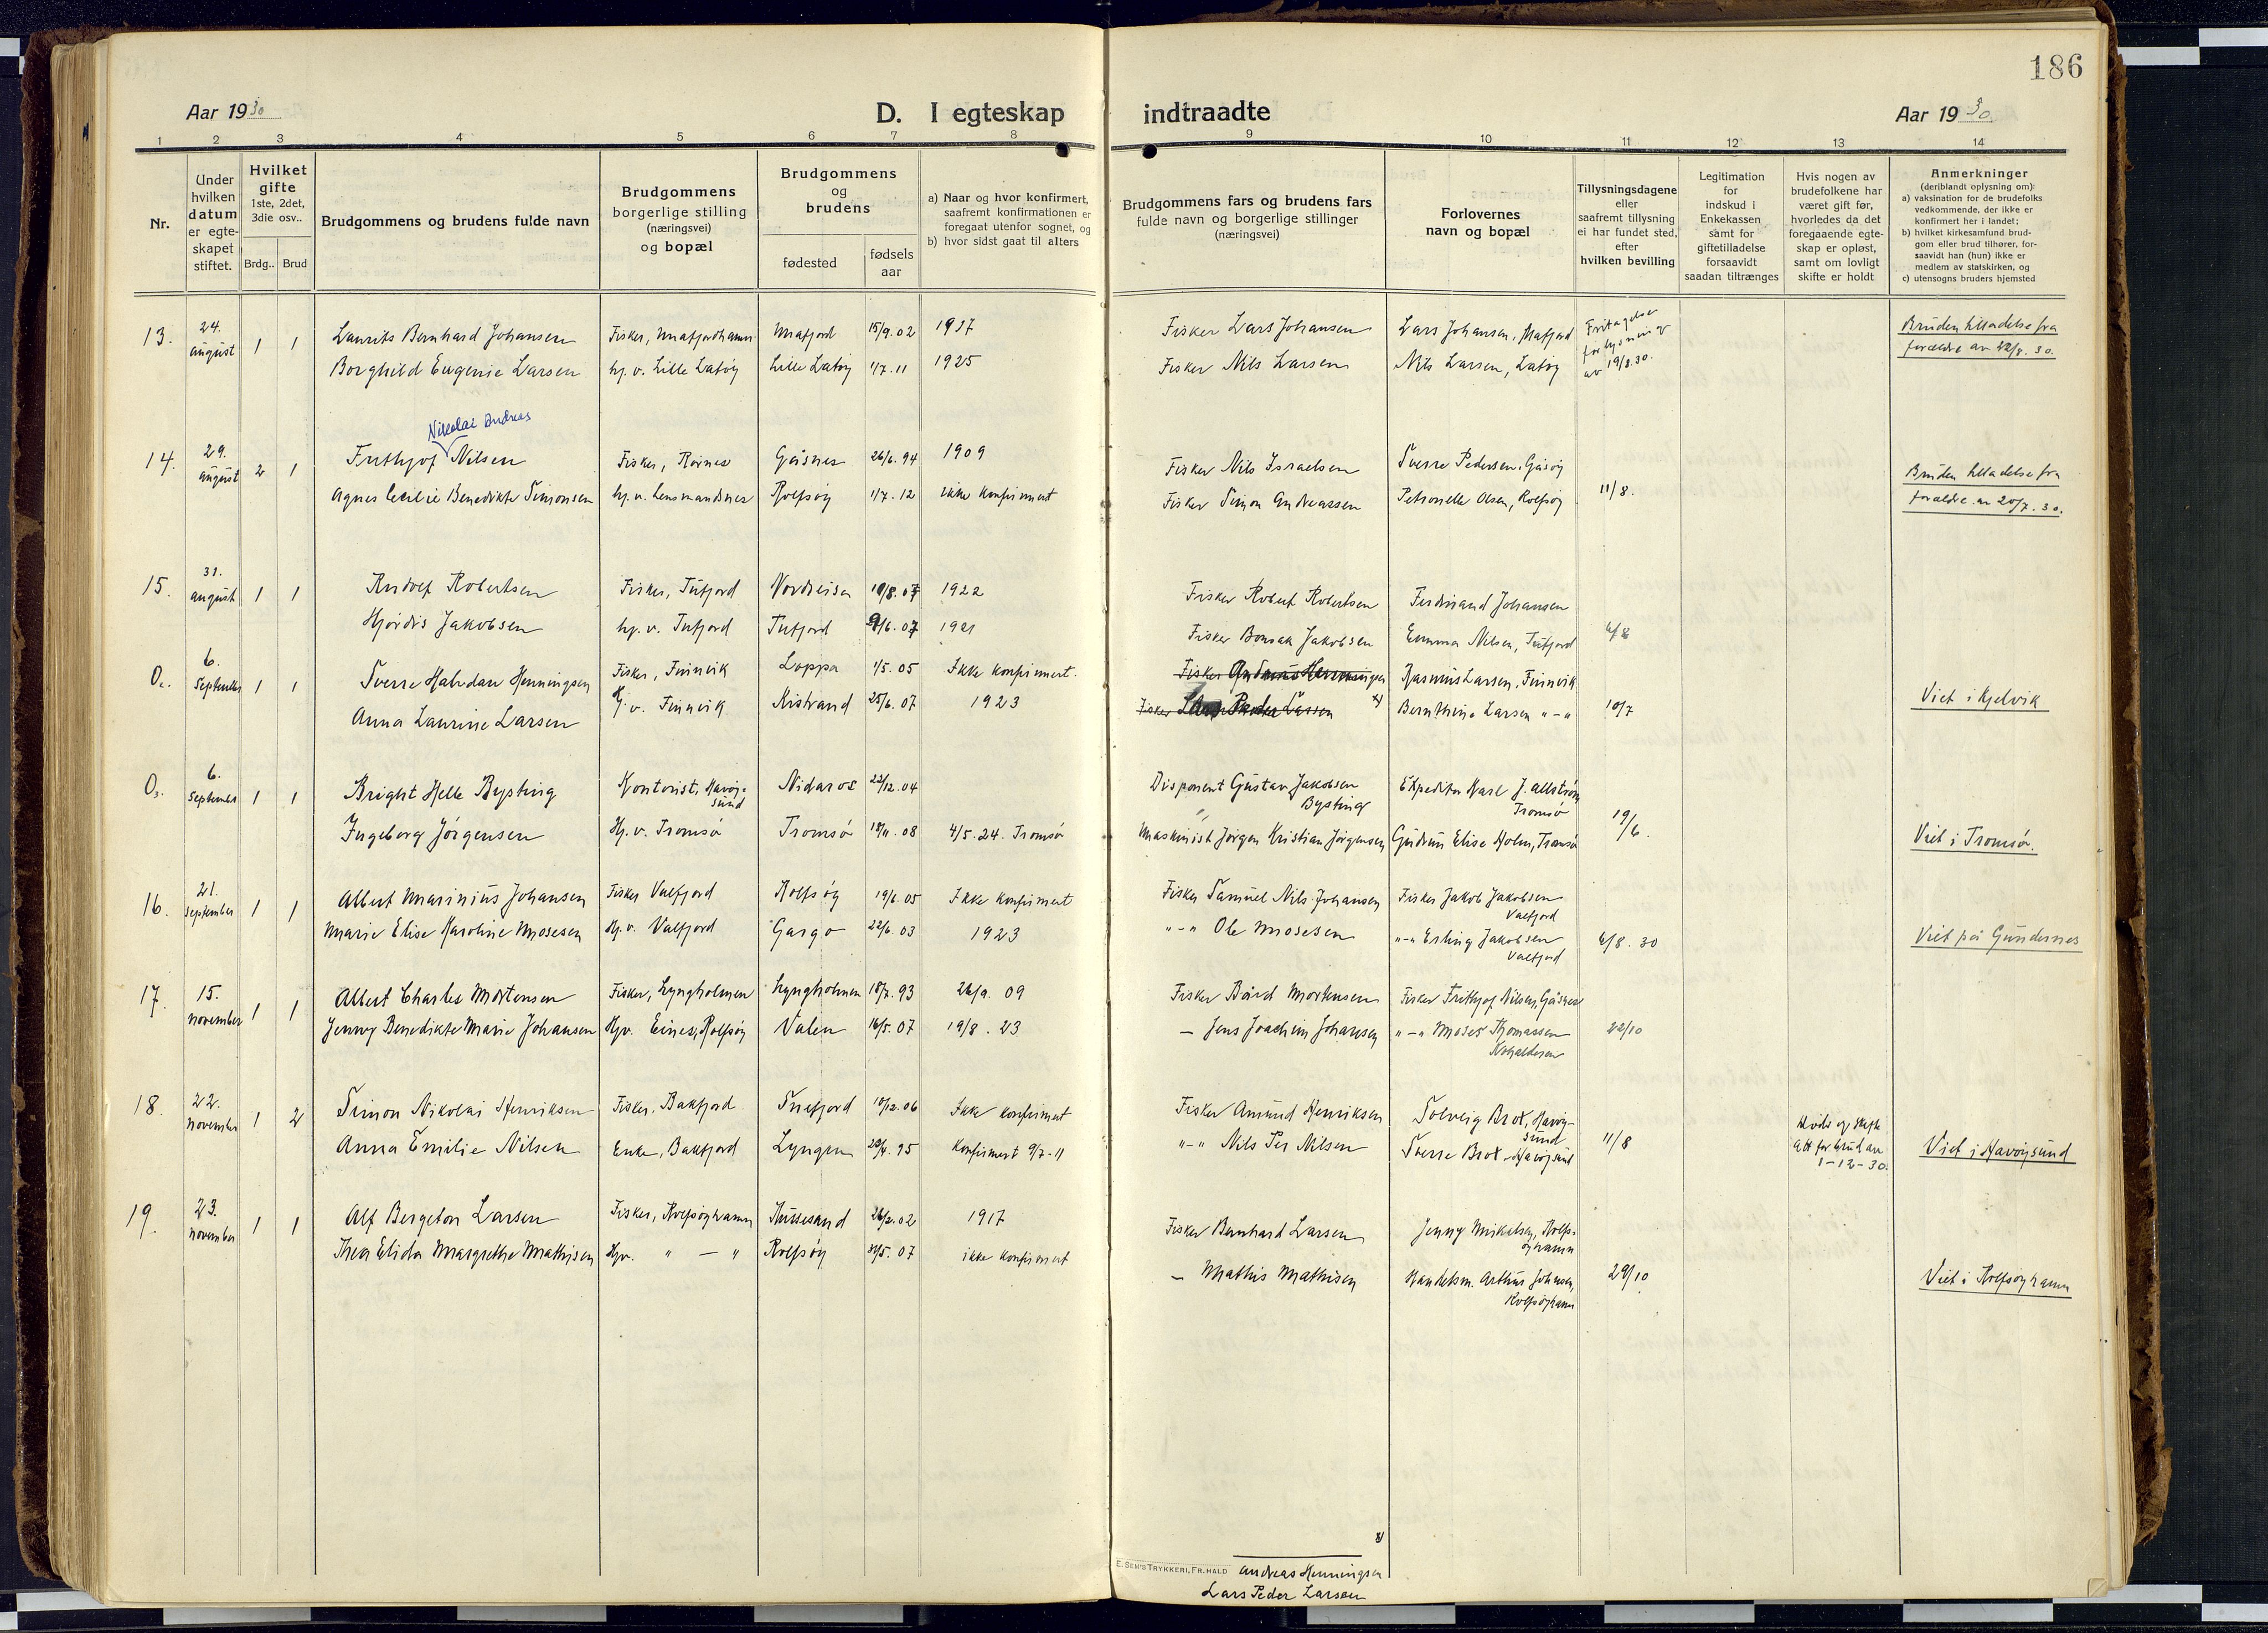 186
Aar 1930
D. I egteskap
indtraadte
Aar 1930
1 2 3 4 5 6 7 8 9 10 11 12 13 14
Nr.
Under hvilken datum er egte- skapet stiftet.
Hvilket gifte 1ste, 2det, 3die osv..
Brdg.. Brud
Brudgommens og brudens fulde navn
Brudgommens borgerlige stilling (næringsvei) og bopæl
Brudgommens og brudens
fødested
fødsels aar
a) Naar og hvor konfirmert, saafremt konfirmationen er foregaat utenfor sognet, og
b) hvor sidst gaat til alters
Brudgommens fars og brudens fars fulde navn og borgerlige stillinger (næringsvei)
Forlovernes navn og bopæl
Tillysningsdagene eller saafremt tillysning ei har fundet sted, efter hvilken bevilling
Legitimation for indskud i Enkekassen samt for giftetilladelse forsaavidt saadan tiltrænges
Hvis nogen av brudefolkene har været gift før, hvorledes da det foregaaende egte- skap er opløst, samt om lovligt skifte er holdt
Anmerkninger (deriblandt oplysning om):
a) vaksination for de brudefolks vedkommende, der ikke er konfirmert her i landet;
b) hvilket kirkesamfund brud- gom eller brud tilhører, for- saavidt han (hun) ikke er medlem av statskirken, og
c) utensogns bruders hjemsted
13. 24. august 1 1 Laurits Bernhard Johansen Fisker, Mafjordhamn Mafjord 15/9.02 1917 Fisker Lars Johansen Lars Johansen, Mafjord Fritagelse for lysning av 19/8.30. Bruden tilladelse fra forældre av 12/8.30.
Borghild Eugenie Larsen hj. v. Lille Latøy Lille Latøy 1/7.11 1925 Fisker Nils Larsen Nils Larsen, Latøy
Nikolai Andreas
14. 29. august 2 1 Frithjof Nilsen Fisker, Gåsnes 26/6.94 1909 Fisker Nils Israelsen Sverre Pedersen, Gåsøy Bruden tilladelse fra forældre av 20/7.30.
Agnes Cecilie Benedikte Simonsen hj. v. Lensmandsnes Rolfsøy 1/7.12 ikke konfirmert Fisker Simon Andreassen Petronelle Olsen, Rolfsøy 11/8.
15. 31. august 1 1 Rudolf Robertsen Fisker, Tufjord 19/8.07 1922 Fisker Robert Robertsen Ferdinand Johansen
Hjørdis Jakobsen hj. v. Tufjord Tufjord 9/6.07 1921 Fisker Bonsak Jakobsen Emma Nilsen, Tufjord 6/8
O2. 6. September 1 1 Sverre Halvdan Henningsen Fisker, Finnvik Loppa 1/5.05 Ikke konfirmert. Fisker Andreas Henningsen Rasmus Larsen, Finnvik
Anna Laurine Larsen Hj. v. Finnvik Kistrand 25/6.07 1923 Fisker Lars Peder Larsen x) Bernthine Larsen "-" 10/7 Viet i Kjelvik
O3. 6. September 1 1 Bright Helle Bysting Kontorist, Havøysund Nidaros 22/12.04 Disponent Gustav Jakobsen Bysting Expeditør Karl J. Allstrøm Tromsø
Ingeborg Jørgensen Hj. v. Tromsø Tromsø 18/11.08 4/5.24. Tromsø Maskinist Jørgen Kristian Jørgensen Gudrun Elise Holm, Tromsø 19/6. Viet i Tromsø.
16. 21. September 1 1 Albert Marinius Johansen Fisker Valfjord Rolfsøy 19/6.05 Ikke konfirmert Fisker Samuel Nils Johansen Fisker Jakob Jakobsen Valfjord
Marie Elise Karoline Mosesen Hj. v. Valfjord Gargo 22/6.03 1923 "-" Ole Mosesen "-" Erling Jakobsen Valfjord 6/8.30 Viet på Gundernes
17. 15. november 1 1 Albert Charles Mortensen Fisker, Lyngholmen Lyngholmen 18/7.93 26/9.09 Fisker Bård Mortensen Fisker Frithjof Nilsen, Gåsnes
Jenny Benedikte Marie Johansen Hjv. Eines, Rolfsøy Valen 16/5.07 19/8.23 – Jens Joachim Johansen "-" Moses Thomassen 22/10
18. 22. november 1 2 Simon Nikolai Henriksen Fisker, Bakfjord Snefjord 10/12.06 Ikke konfirmert Fisker Amund Henriksen Solveig Brox, Havøysund 11/8
Anna Emilie Nilsen Enke, Bakfjord Lyngen 29/4.95 Konfirmert 9/7-11 "-" Nils Per Nilsen Sverre Brox – Havøysund att for brud av 1-12-30. Viet i Havøysund
19. 23. november 1 1 Alf Bergeton Larsen Fisker, Rolfsøyhamn Russesund 26/2.02 1917 Fisker Bernhard Larsen Jenny Mikalsen, Rolfsøyhamn
Thea Elida Margrethe Mathisen Hjv. " – " Rolfsøy 31/5.07 ikke konfirmert – Mathis Mathisen Handelsm. Arthur Johnsen, Rolfsøyhamn 29/10 Viet i Rolfsøyhamn
x)
E. SEM'S TRYKKERI, FR.HALD
Andreas Henningsen
Lars Peder Larsen